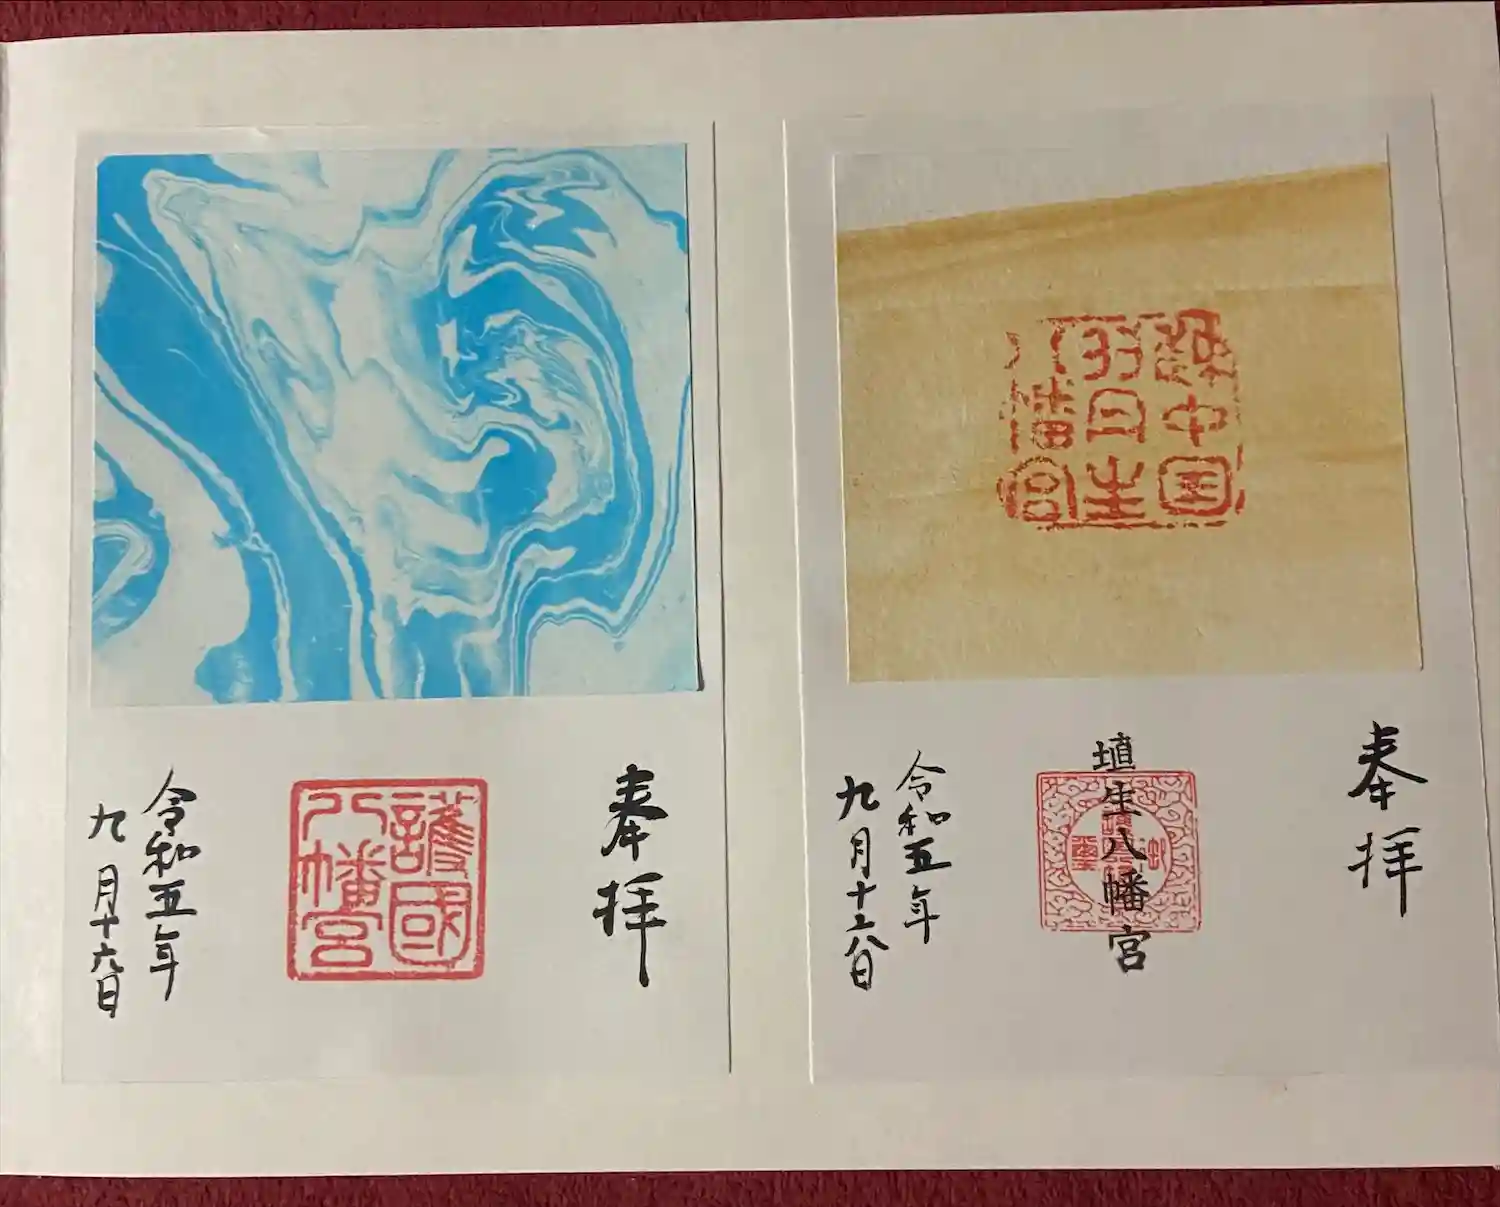 奉拝
中国
羽丹生
八幡宮
埴生八幡宮
令和五年
九月十六日
奉拝
護國
八幡宮
令和五年
九月十六日